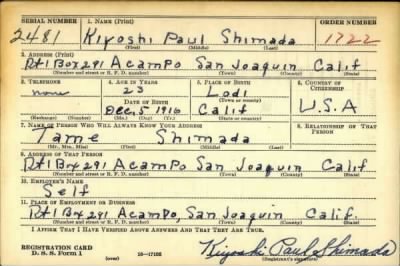 SERIAL NUMBER 1. NAME (Print) ORDER NUMBER
2481 Kiyoshi Paul Shimada 1722
(First) (Middle) (Last)
2. ADDRESS (Print)
Rt 1 Box 291 Acampo San Joaquin Calif
(Number and street or R. F. D. number) (Town) (County) (State)
3. TELEPHONE 4. AGE IN YEARS 5. PLACE OF BIRTH 6. COUNTRY OF CITIZENSHIP
none 23 Lodi
DATE OF BIRTH (Town or county)
Dec. 5 1916 Calif U.S.A
(Exchange) (Number) (Mo.) (Day) (Yr.) (State or country)
7. NAME OF PERSON WHO WILL ALWAYS KNOW YOUR ADDRESS 8. RELATIONSHIP OF THAT PERSON
Tame Shimada
(Mr., Mrs., Miss) (First) (Middle) (Last)
9. ADDRESS OF THAT PERSON
Rt 1 Box 291 Acampo San Joaquin Calif
(Number and street or R. F. D. number) (Town) (County) (State)
10. EMPLOYER'S NAME
Self
11. PLACE OF EMPLOYMENT OR BUSINESS
Rt 1 Box 291 Acampo, San Joaquin Calif.
(Number and street or R. F. D. number) (Town) (County) (State)
I AFFIRM THAT I HAVE VERIFIED ABOVE ANSWERS AND THAT THEY ARE TRUE.
REGISTRATION CARD
D. S. S. Form 1 (over) 16—17105 Kiyoshi Paul Shimada
(Registrant's signature)